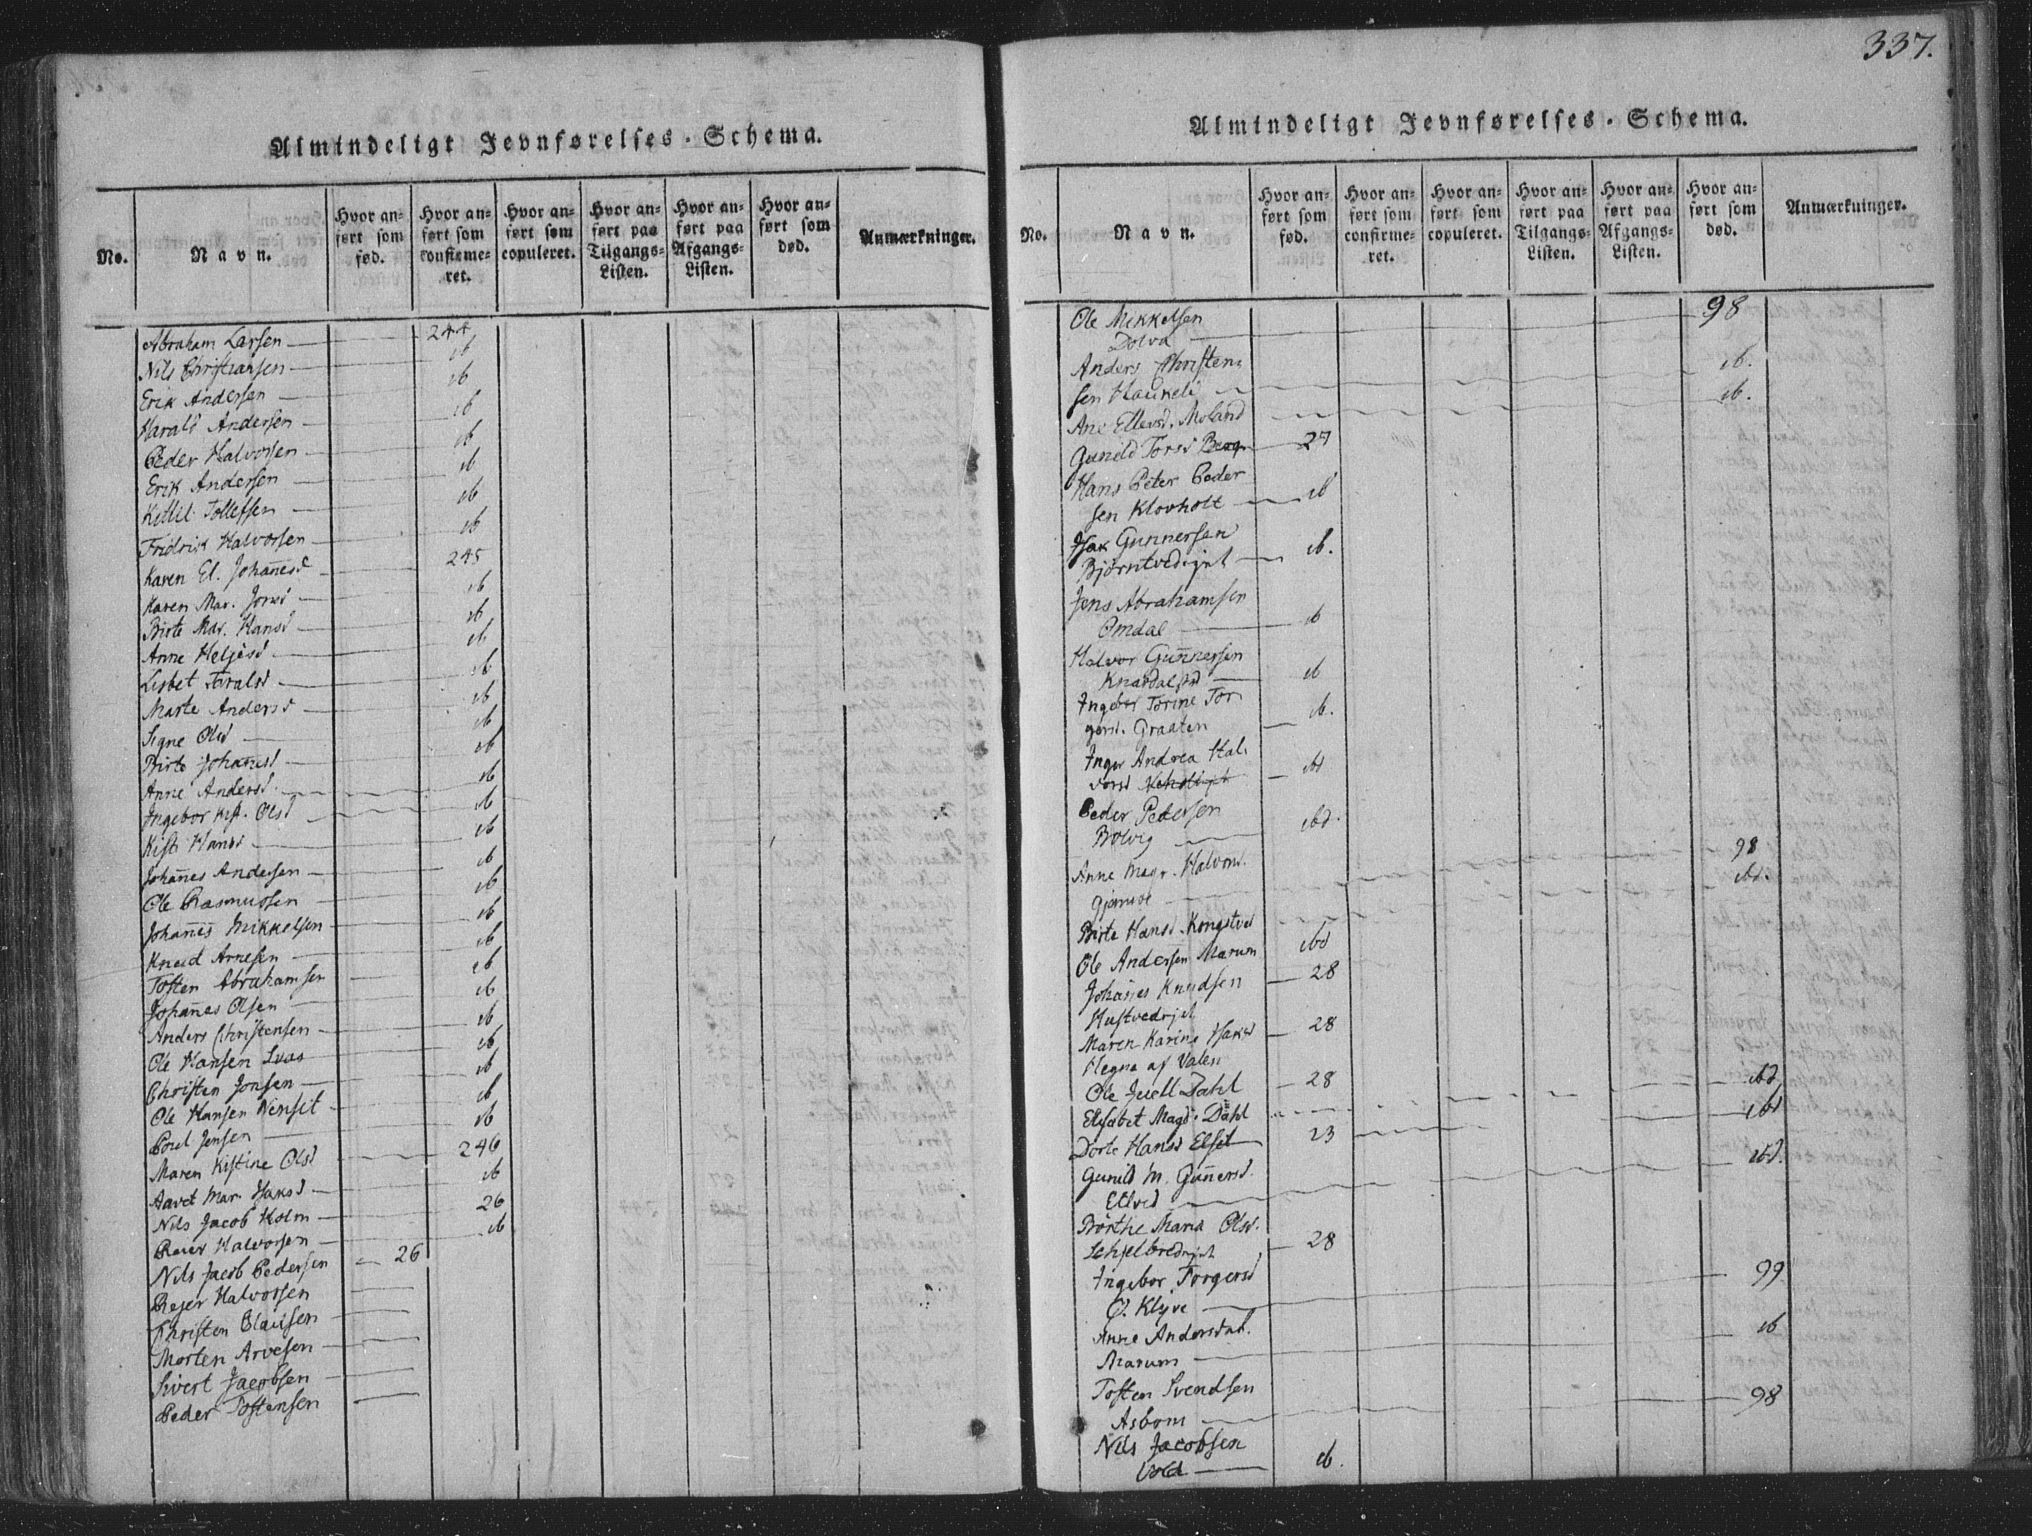 337.
Almindeligt Jevnførelses-Schema.
No.
Navn.
Hvor an-
ført som
fød.
Hvor an-
ført som
confirme-
ret.
Hvor an-
ført som
copuleret.
Hvor an-
ført paa
Tilgangs-
Listen.
Hvor an-
ført paa
Afgangs-
Listen.
Hvor an-
ført som
død.
Anmærkninger.
Abraham Larsen 244
Nils Christiansen ib
Erik Andersen ib
Harald Andersen ib
Peder Halvorsen ib
Erik Andersen ib
Kittil Tollefsen ib
Fridrik Halvorsen ib
Karen El. Johanesd 245
Karen Mar. Jonsd ib
Birte Mar. Hansd ib
Anne Heljesd ib
Lisbet ib
Marte Andersd ib
Signe Olsd ib
Birte Johanesd ib
Anne Andersd ib
Ingebor Kist. Olsd ib
Kist. Hansd ib
Johanes Andersen ib
Ole Rasmussen ib
Johanes Mikkelsen ib
Knud Arnesen ib
Tosten Abrahamsen ib
Johanes Olsen ib
Anders Christensen ib
Ole Hansen Svas ib
Christen Jonsen ib
Ole Hansen Nenset ib
Poul Jensen ib
Maren Kistine Olsd 246
Aavet Mar. Isaksd ib
Nils Jacob Holm 26
Reier Halvorsen ib
Nils Jacob Pedersen 26
Rejer Halvorsen
Christen Clausen
Morten Arvesen
Sivert Jacobsen
Peder Tostensen
Almindeligt Jevnførelses-Schema.
No.
Navn.
Hvor an-
ført som
fød.
Hvor an-
ført som
confirme-
ret.
Hvor an-
ført som
copuleret.
Hvor an-
ført paa
Tilgangs-
Listen.
Hvor an-
ført paa
Afgangs-
Listen.
Hvor an-
ført som
død.
Anmærkninger.
Ole Mikkelsen 98
Dolva
Anders Christen- ib.
sen Haukeli ib.
Ane Ellevsd. Moland
Gunild Torsd Berg 27
Hans Peter Peder
sen Klovholt ib
Isak Gunnersen
Bjørntvedejet ib.
Jens Abrahamsen
Omdal ib
Halvor Gunnersen
Knardalstrd ib
Ingebor Torine Tor
gersd. Graaten ib.
Inger Andrea Hal-
vorsd ibd
Peder Pedersen
Bolvig ibd.
Anne Magr. Halvorsd. 98
ibd.
Birte Hansd. Kongstved
Ole Andersen Marum ibd
Johanes Knudsen 28
Hustvedejet
Maren Karine Isaksd 28
Hegna af Valen
Ole Juell Dahl 28 ibd
Elisabet Magd. Dahl ibd
Dorte Hansd Elset 23
Gunild M. Gunersd. ibd.
Ettved
Børthe Maria Olsd.
Schjelbredejet 28
Ingebor Torgersd 99
Ø. Klyve
Anne Andersdat. ib
Marum
Tosten Svendsen 98
Asbom
Nils Jacobsen
Vold ib.